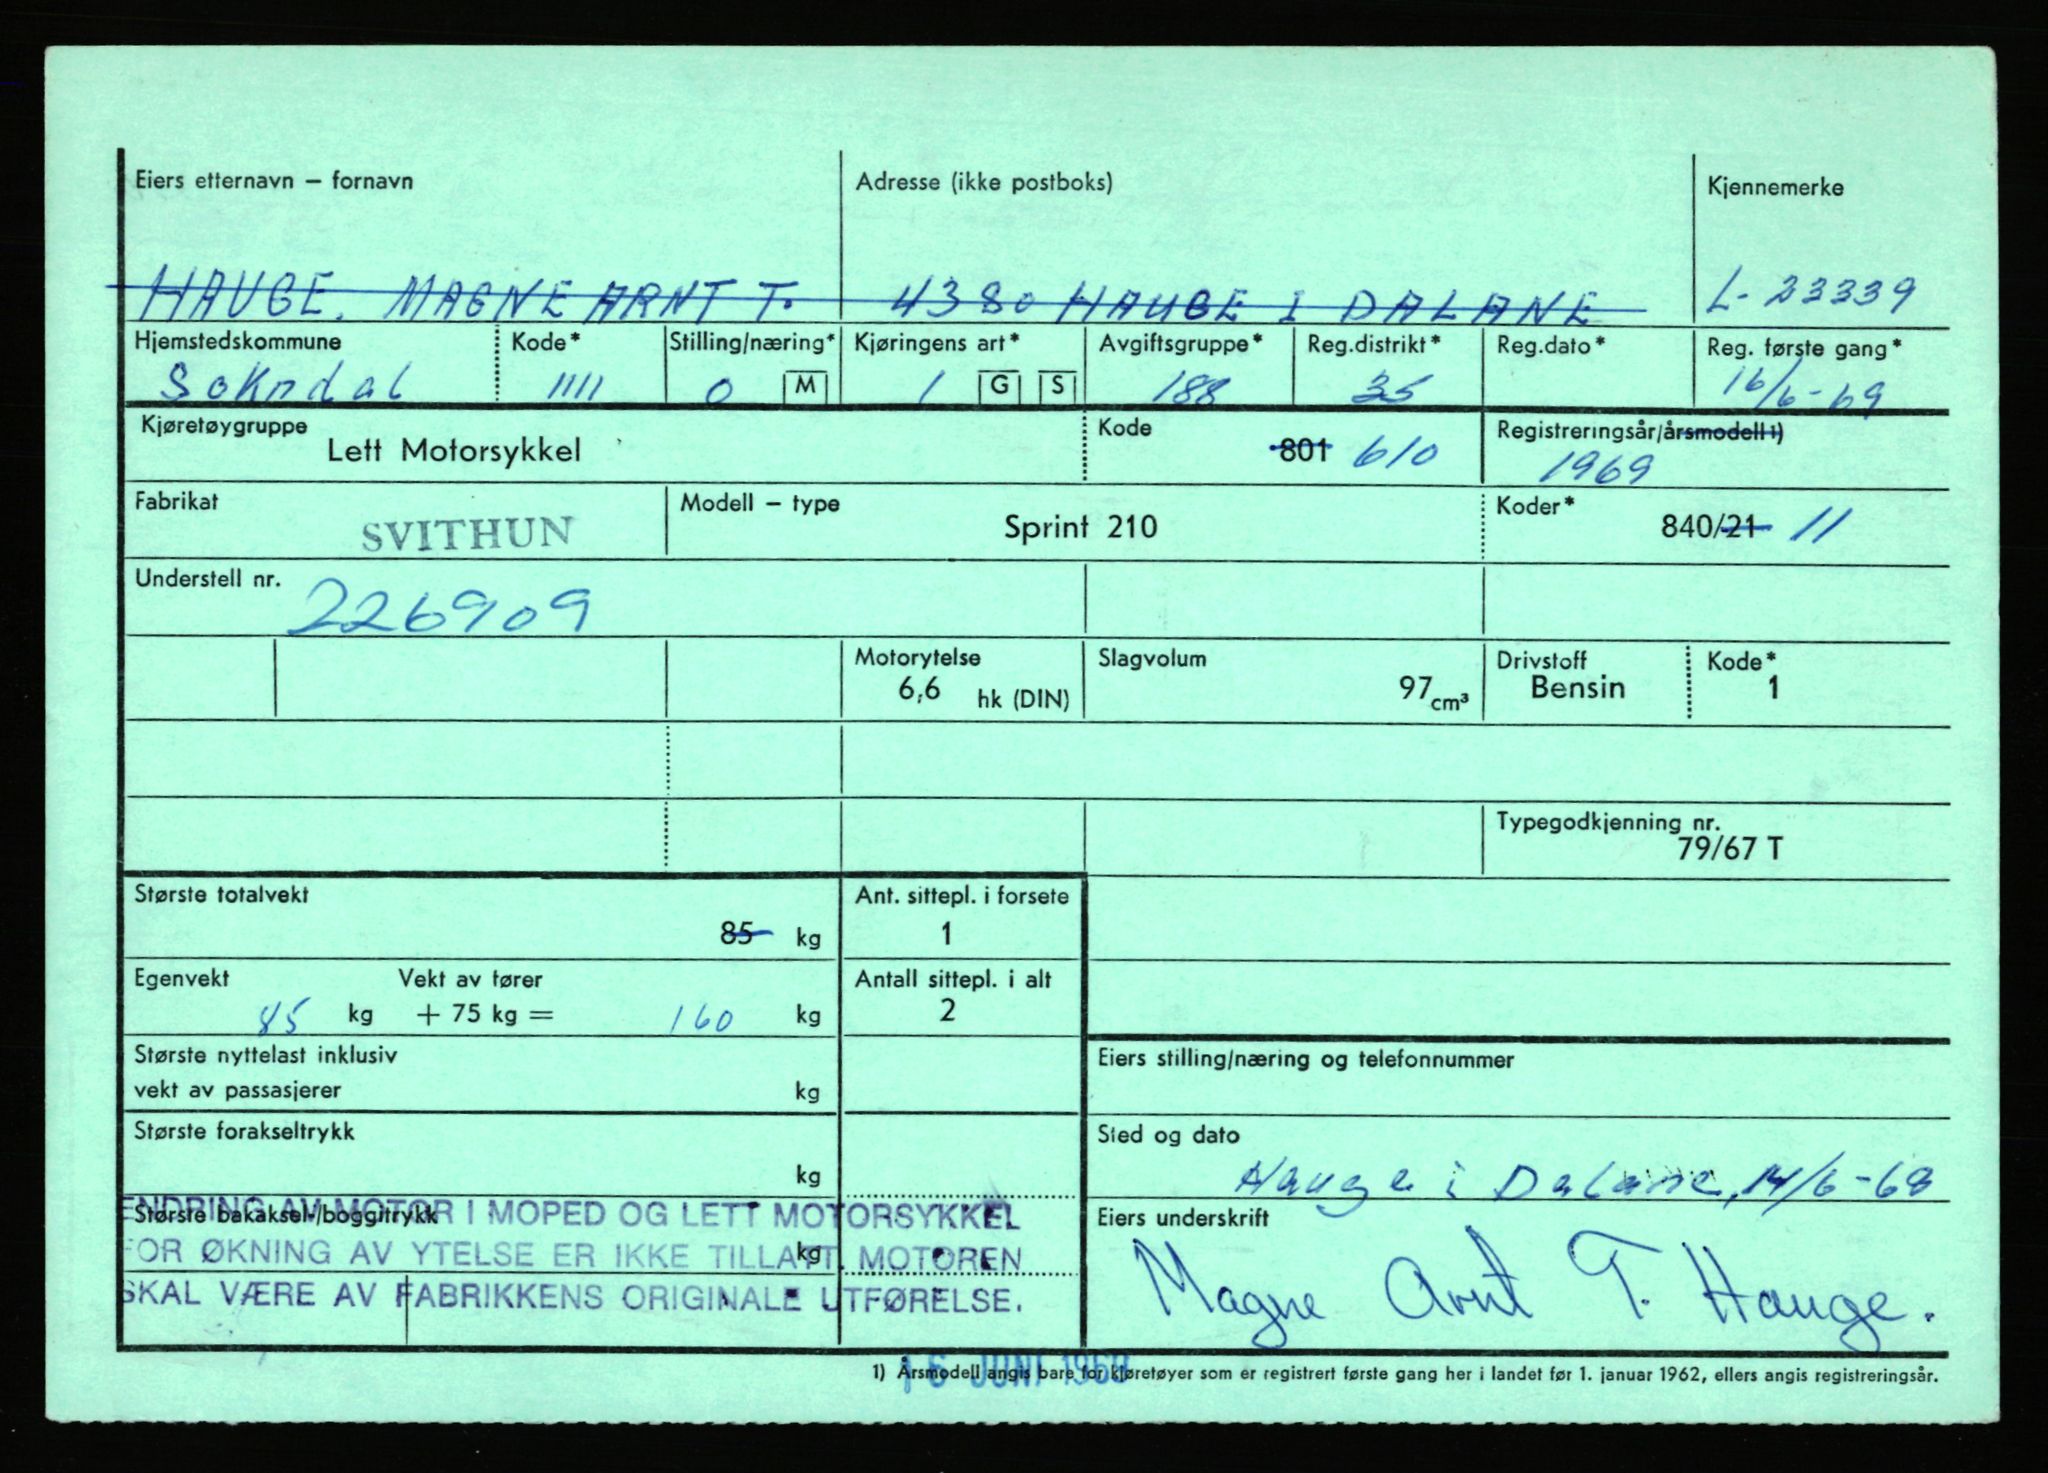 Eiers etternavn – fornavn Adresse (ikke postboks) Kjennemerke
HAUGE, MAGNE ARNT T. 4380 HAUGE I DALANE L-23339
Hjemstedskommune Kode* Stilling/næring* Kjøringens art* Avgiftsgruppe* Reg.distrikt* Reg.dato* Reg. første gang*
Sokndal 1111 0 M 1 G S 188 35 16/6-69
Kjøretøygruppe Lett Motorsykkel Kode 801 610 Registreringsår/årsmodell 1)
1969
Fabrikat SVITHUN Modell – type Sprint 210 Koder* 840/21 11
Understell nr. 226909
Motorytelse Slagvolum Drivstoff Kode*
6,6 hk (DIN) 97 cm³ Bensin 1
Typegodkjenning nr.
79/67 T
Største totalvekt Ant. sittepl. i forsete
85 kg 1
Egenvekt Vekt av fører Antall sittepl. i alt
85 kg + 75 kg = 160 kg 2
Største nyttelast inklusiv Eiers stilling/næring og telefonnummer
vekt av passasjerer kg
Største forakseltrykk Sted og dato
kg Hauge i Dalane, 14/6-68
ENDRING AV MOTOR I MOPED OG LETT MOTORSYKKEL
Største bakaksel-/boggitrykk Eiers underskrift
FOR ØKNING AV YTELSE ER IKKE TILLATT. MOTOREN
kg
SKAL VÆRE AV FABRIKKENS ORIGINALE UTFØRELSE.
Magne Arnt T. Hauge.
16 JUNI 1969
1) Årsmodell angis bare for kjøretøyer som er registrert første gang her i landet før 1. januar 1962, ellers angis registreringsår.